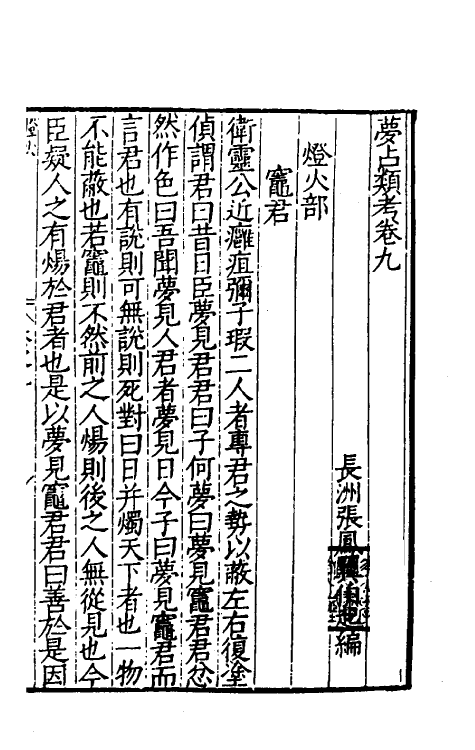 夢占類考卷九
長洲張鳳翼伯起編
燈火部
竈君
衛靈公近癰疽彌子瑕二人者專君之勢以蔽左右復塗
偵謂君曰昔日臣夢見君君曰子何夢曰夢見竈君君忿
然作色曰吾聞夢見人君者夢見日今子曰夢見竈君而
言君也有説則可無説則死對曰日并燭天下者也一物
不能蔽也若竈則不然前之人煬則後之人無從見也今
臣疑人之有煬於君者也是以夢見竈君君曰善於是因